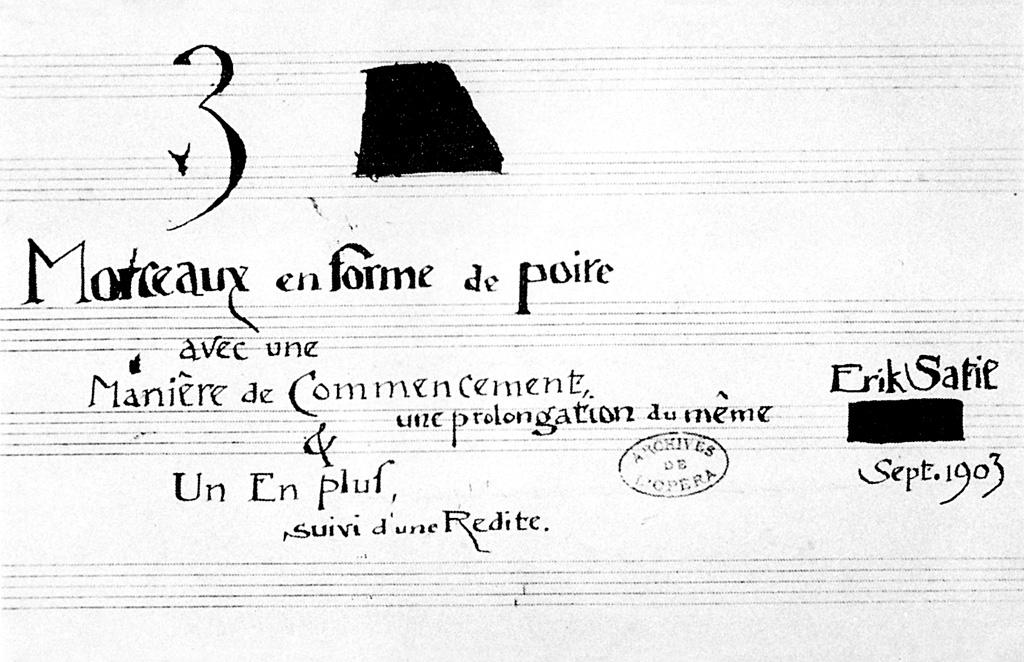 3
Morceaux en forme de poire
avec une
Manière de Commencement,
une prolongation du même
&
Un En plus,
suivi d'une Redite.
Erik Satie
Sept. 1903
ARCHIVES
DE
L'OPERA